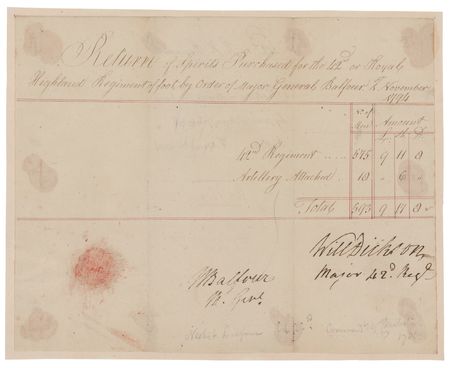 Return of Spirits Purchased for the 42d or Royal
Highland Regiment of foot by Order of Major General Balfour November
1794
No of Men Amount
£ S D
42d Regiment 575 9 11 8
Artillery Attached 18 6
Total 593 9 17 8
Will Dickson
Major 42d Regt
N Balfour
M. Genl